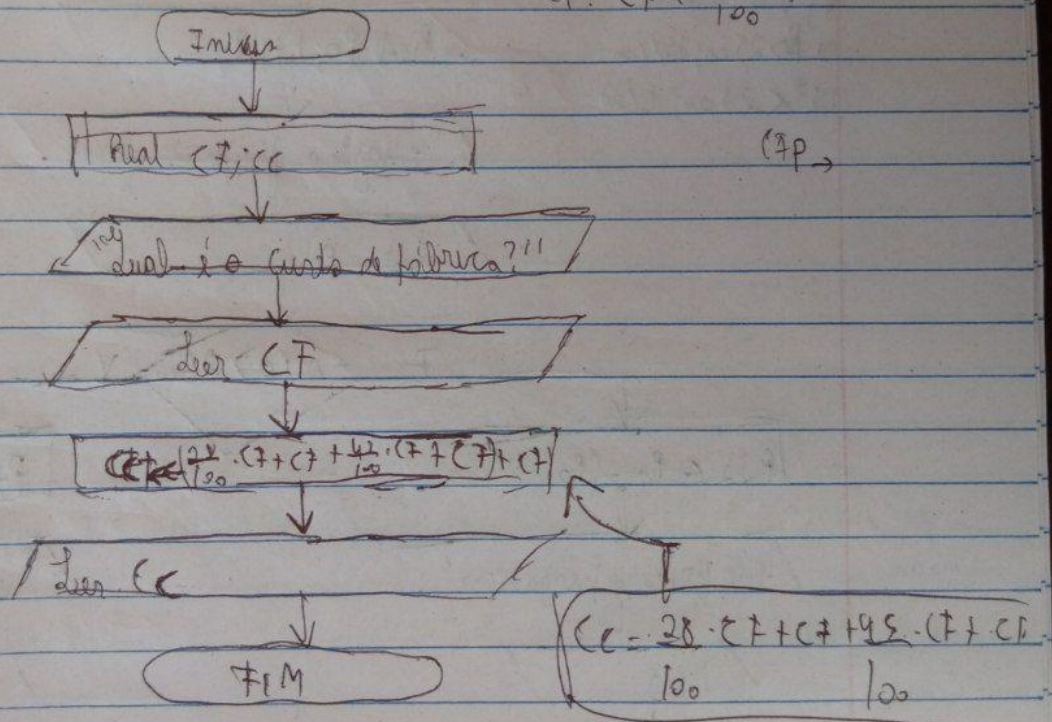 100
Real CF, CC
"Qual é o custo de fábrica?"
Ler CF
28/100 · CF + CF + 45/100 · CF + CF
CFp →
Ler CC
CC = 28/100 · CF + CF + 45/100 · CF + CF
FIM